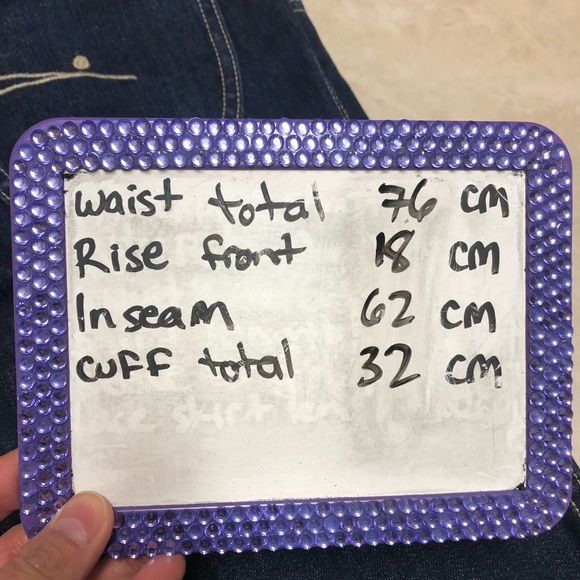 waist total 76 cm
Rise front 18 cm
Inseam 62 cm
cuff total 32 cm